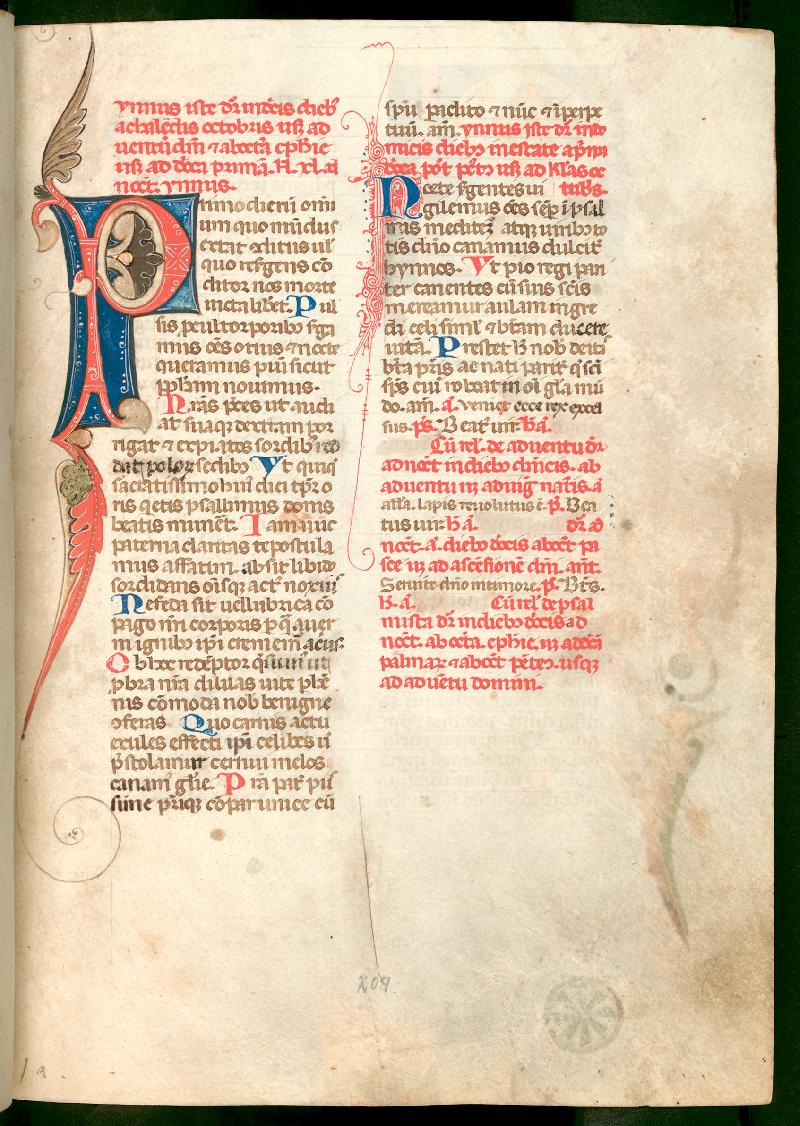 ynnus iste dr̄ in dn̄cis dieb᷒
a chalendis octobris usq᷒ ad
uentū dn̄i ⁊ ab octā ephie
usq᷒ ad dn̄cā primā. xl. ad
noct̄. ynnus.
P rimo dierū oniū
um quo mūdus
extat ꝯditus ul᷒
quo resurgens cō
ditor nos morte
uicta liberet. Pul
sis procul torporibꝫ surga
mus oēs otius ⁊ nocte
queramus piū sicut
ꝓph̄am nouimus.
Nr̄as p̄ces ut audi
at suaqꝫ dexterā por
rigat ⁊ expiatos sordibꝫ red
dat polor᷒ sedibꝫ Vt quiqꝫ
sacratissimo huiꝰ diei tp̄r̄ o
ris q̄etis psallimus donis
beatis muneret. Iam nūc
paterna claritas te postula
mus affatim. absit libido
sordidans oīsqꝫ actꝰ noxius
Ne feda sit uel lubrica cō
pago nr̄i corporis p quā auer
ni ignibꝫ ip̄i crememr̄ acrius
Ob hoc redēptor quesumus ut
ꝓbra nr̄a diluas uite pḣē
nis cōmoda nob̄ benigne
ꝯferas. Quo carnis actu
exules effecti ip̄i celibes ut
p̄stolamur cernui melos
canam᷒ glīe. Prā pat᷒ pīs
sime pr̄iqꝫ cōpar unice cū
sp̄u paclito ⁊ nūc ⁊ īperpe
tuū. am̄. ynnus iste dr̄ in do
minicis diebꝫ in estate a p̄ma
dn̄ca pꝰt pēt᷒ usq᷒ ad kl᷒as oc
tub̄s.
Nocte sūgentes ui
gilemus oēs sēp̄ ī psal
mis meditem᷒ atqꝫ uiribꝫ to
tis dn̄o canamus dulcit᷒
hymnos. Vt pio regi pari
ter canentes cū suis sc̄is
mereamur aulam ingre
di celi simul ⁊ btām ducere
uitā. Prestet h̄ nob̄ deitas
btā pr̄is ac nati parit᷒ qꝫ sc̄i
sp̄s cuiꝰ reboat in oī glīa mū
do. am̄. a. Veniet ecce rex excel
sus. ps̄. Beat᷒ uir. h̄. a.
Cū rel᷒. de aduentu dr̄
ad noct̄ in diebꝫ dn̄icis. ab
aduentu usqꝫ ad uig᷒ natiū. a
alla. lapis reuolutus ē. p̄. Bea
tus uir. h̄. a. dr̄ ad
noct̄. a. diebꝫ dn̄cis ab oct̄ pa
sce usqꝫ ad ascēsionē dn̄i. ant̄.
Seruite dn̄o in timore. p̄. Bt̄s.
h̄. a. Cū rel᷒. de psal
mista dr̄ in diebꝫ dn̄cis ad
noct̄. ab octa. ephie. usqꝫ ad dn̄cā
palmar᷒ ⁊ ab oct̄ pēteꝰ. usqꝫ
ad aduētū domini.
209
1 a.